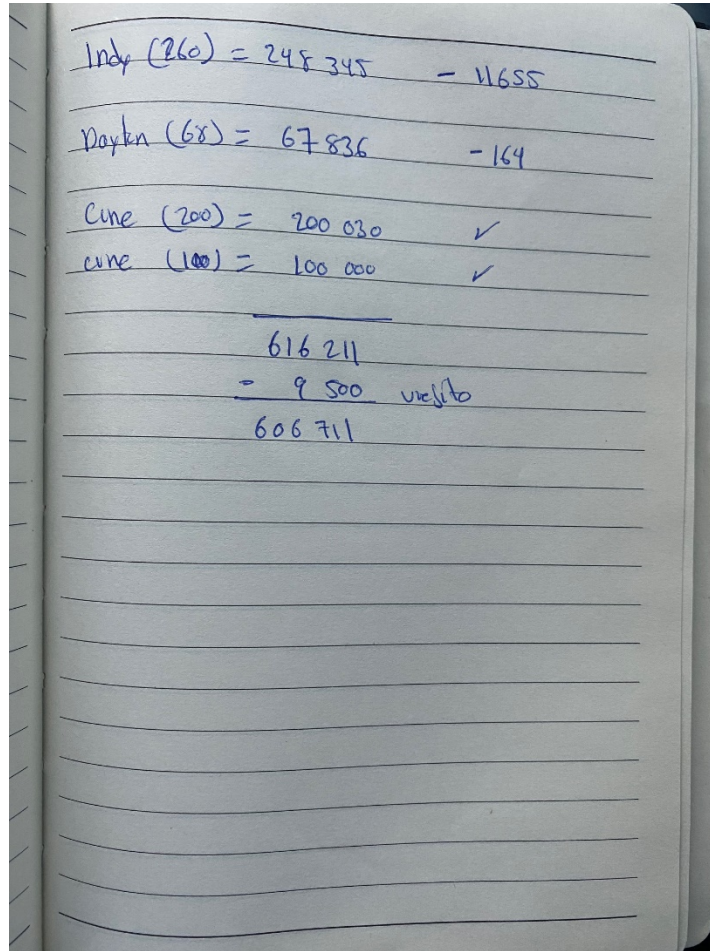 Indy (260) = 248 345 - 11655
Daykn (68) = 67 836 - 164
Cune (200) = 200 030 ✓
cune (100) = 100 000 ✓
616 211
- 9 500
606 711